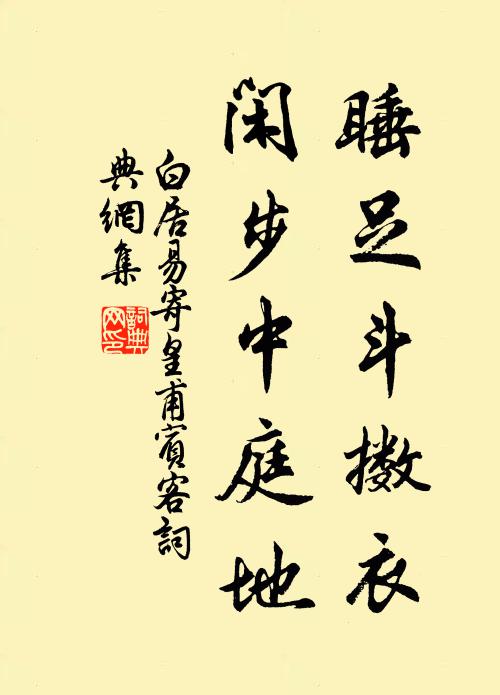 睡足斗擻衣
閑步中庭地
白居易寄皇甫賓客詞
典網集
詞典網印